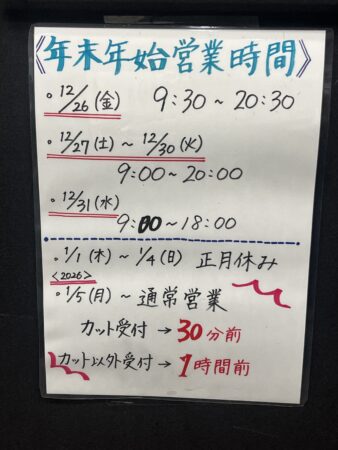 《年末年始営業時間》
・12/26(金) 9:30~20:30
・12/27(土)~12/30(火)
9:00~20:00
・12/31(水)
9:00~18:00
・1/1(木)~1/4(日) 正月休み
<2026>
・1/5(月)~通常営業
カット受付→30分前
カット以外受付→1時間前